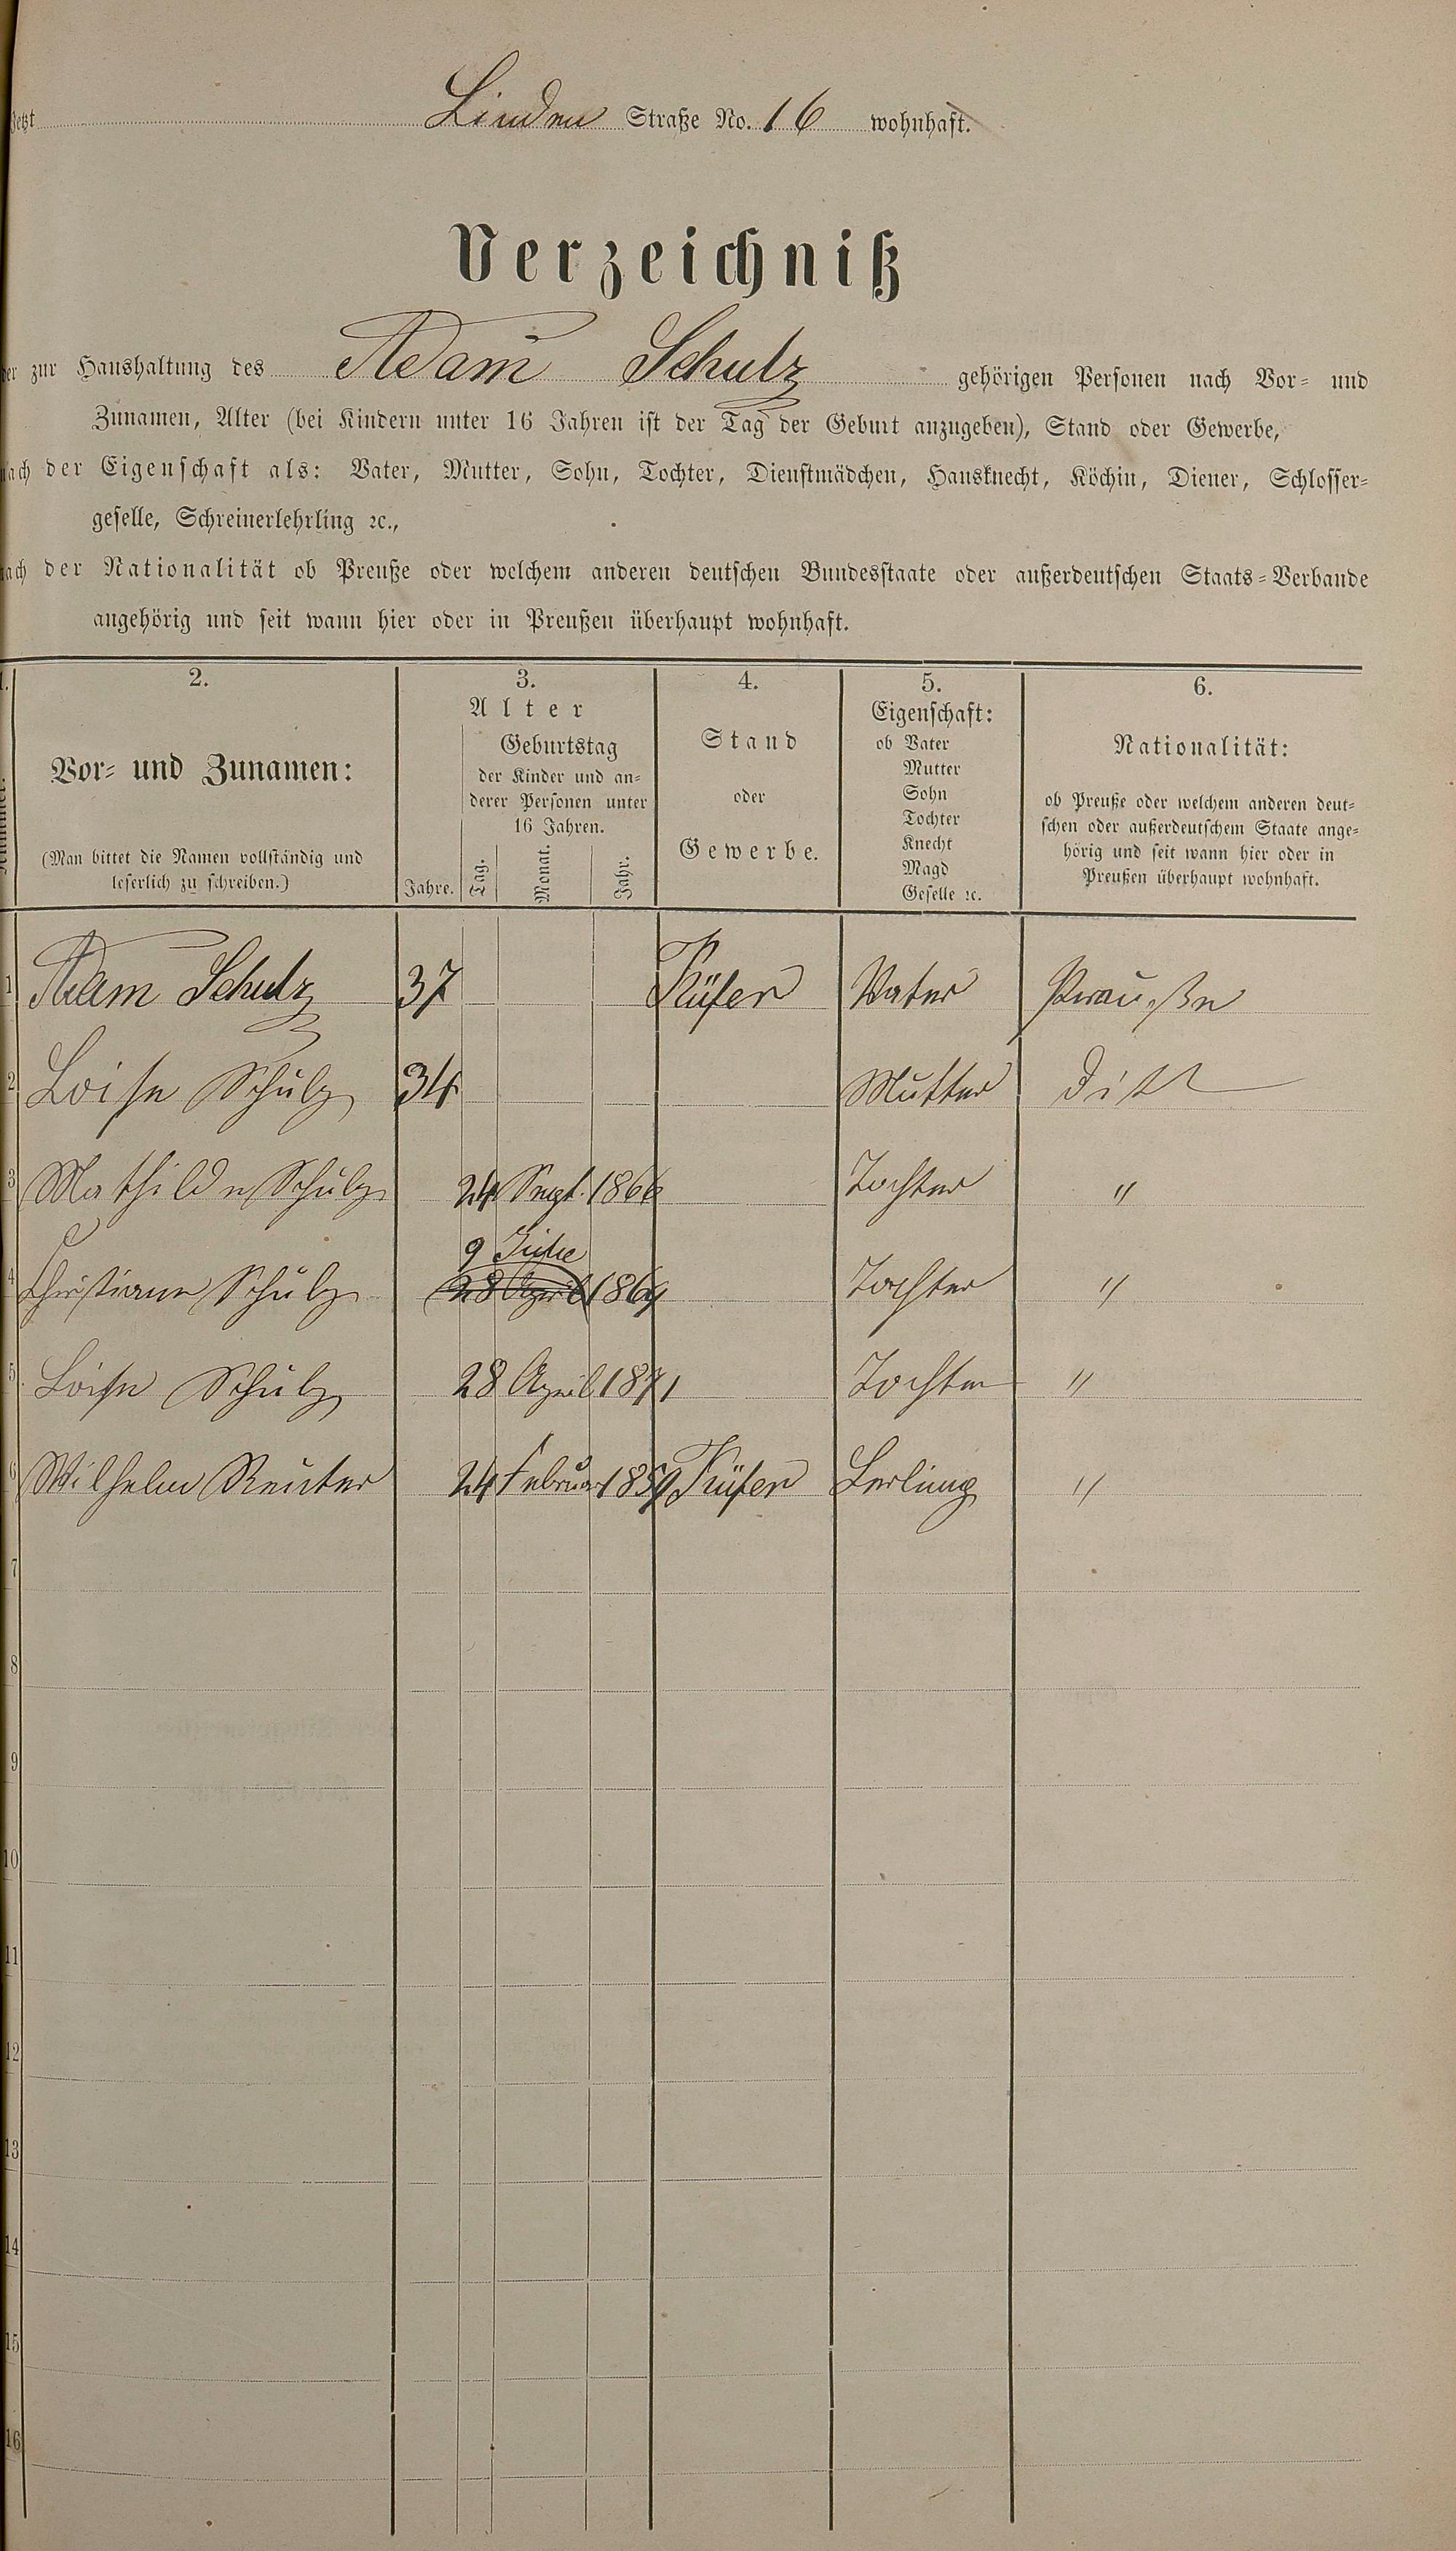 Jetzt Linden Straße No. 16 wohnhaft.
Verzeichniß
der zur Haushaltung des Adam Schulz gehörigen Personen nach Vor- und
Zunamen, Alter (bei Kindern unter 16 Jahren ist der Tag der Geburt anzugeben), Stand oder Gewerbe,
nach der Eigenschaft als: Vater, Mutter, Sohn, Tochter, Dienstmädchen, Hausknecht, Köchin, Diener, Schlosser-
geselle, Schreinerlehrling ꝛc.,
nach der Nationalität ob Preuße oder welchem anderen deutschen Bundesstaate oder außerdeutschen Staats-Verbande
angehörig und seit wann hier oder in Preußen überhaupt wohnhaft.
1.
2.
Vor- und Zunamen:
(Man bittet die Namen vollständig und
leserlich zu schreiben.)
3.
Alter
Geburtstag
der Kinder und an-
derer Personen unter
16 Jahren.
Jahre. Tag. Monat. Jahr.
4.
Stand
oder
Gewerbe.
5.
Eigenschaft:
ob Vater
Mutter
Sohn
Tochter
Knecht
Magd
Geselle ꝛc.
6.
Nationalität:
ob Preuße oder welchem anderen deut-
schen oder außerdeutschem Staate ange-
hörig und seit wann hier oder in
Preußen überhaupt wohnhaft.
1 Adam Schulz 37 Küfer Vater Preuße
2 Loise Schulz 34 Mutter
3 Mathilde Schulz 24 Sept. 1866 Tochter "
9
4 Christiane Schulz 28 April 1869 Tochter "
5 Loise Schulz 28 April 1871 Tochter "
6 Wilhelm Reuter 24 Februar 1859 Küfer Lerling "
7
8
9
10
11
12
13
14
15
16